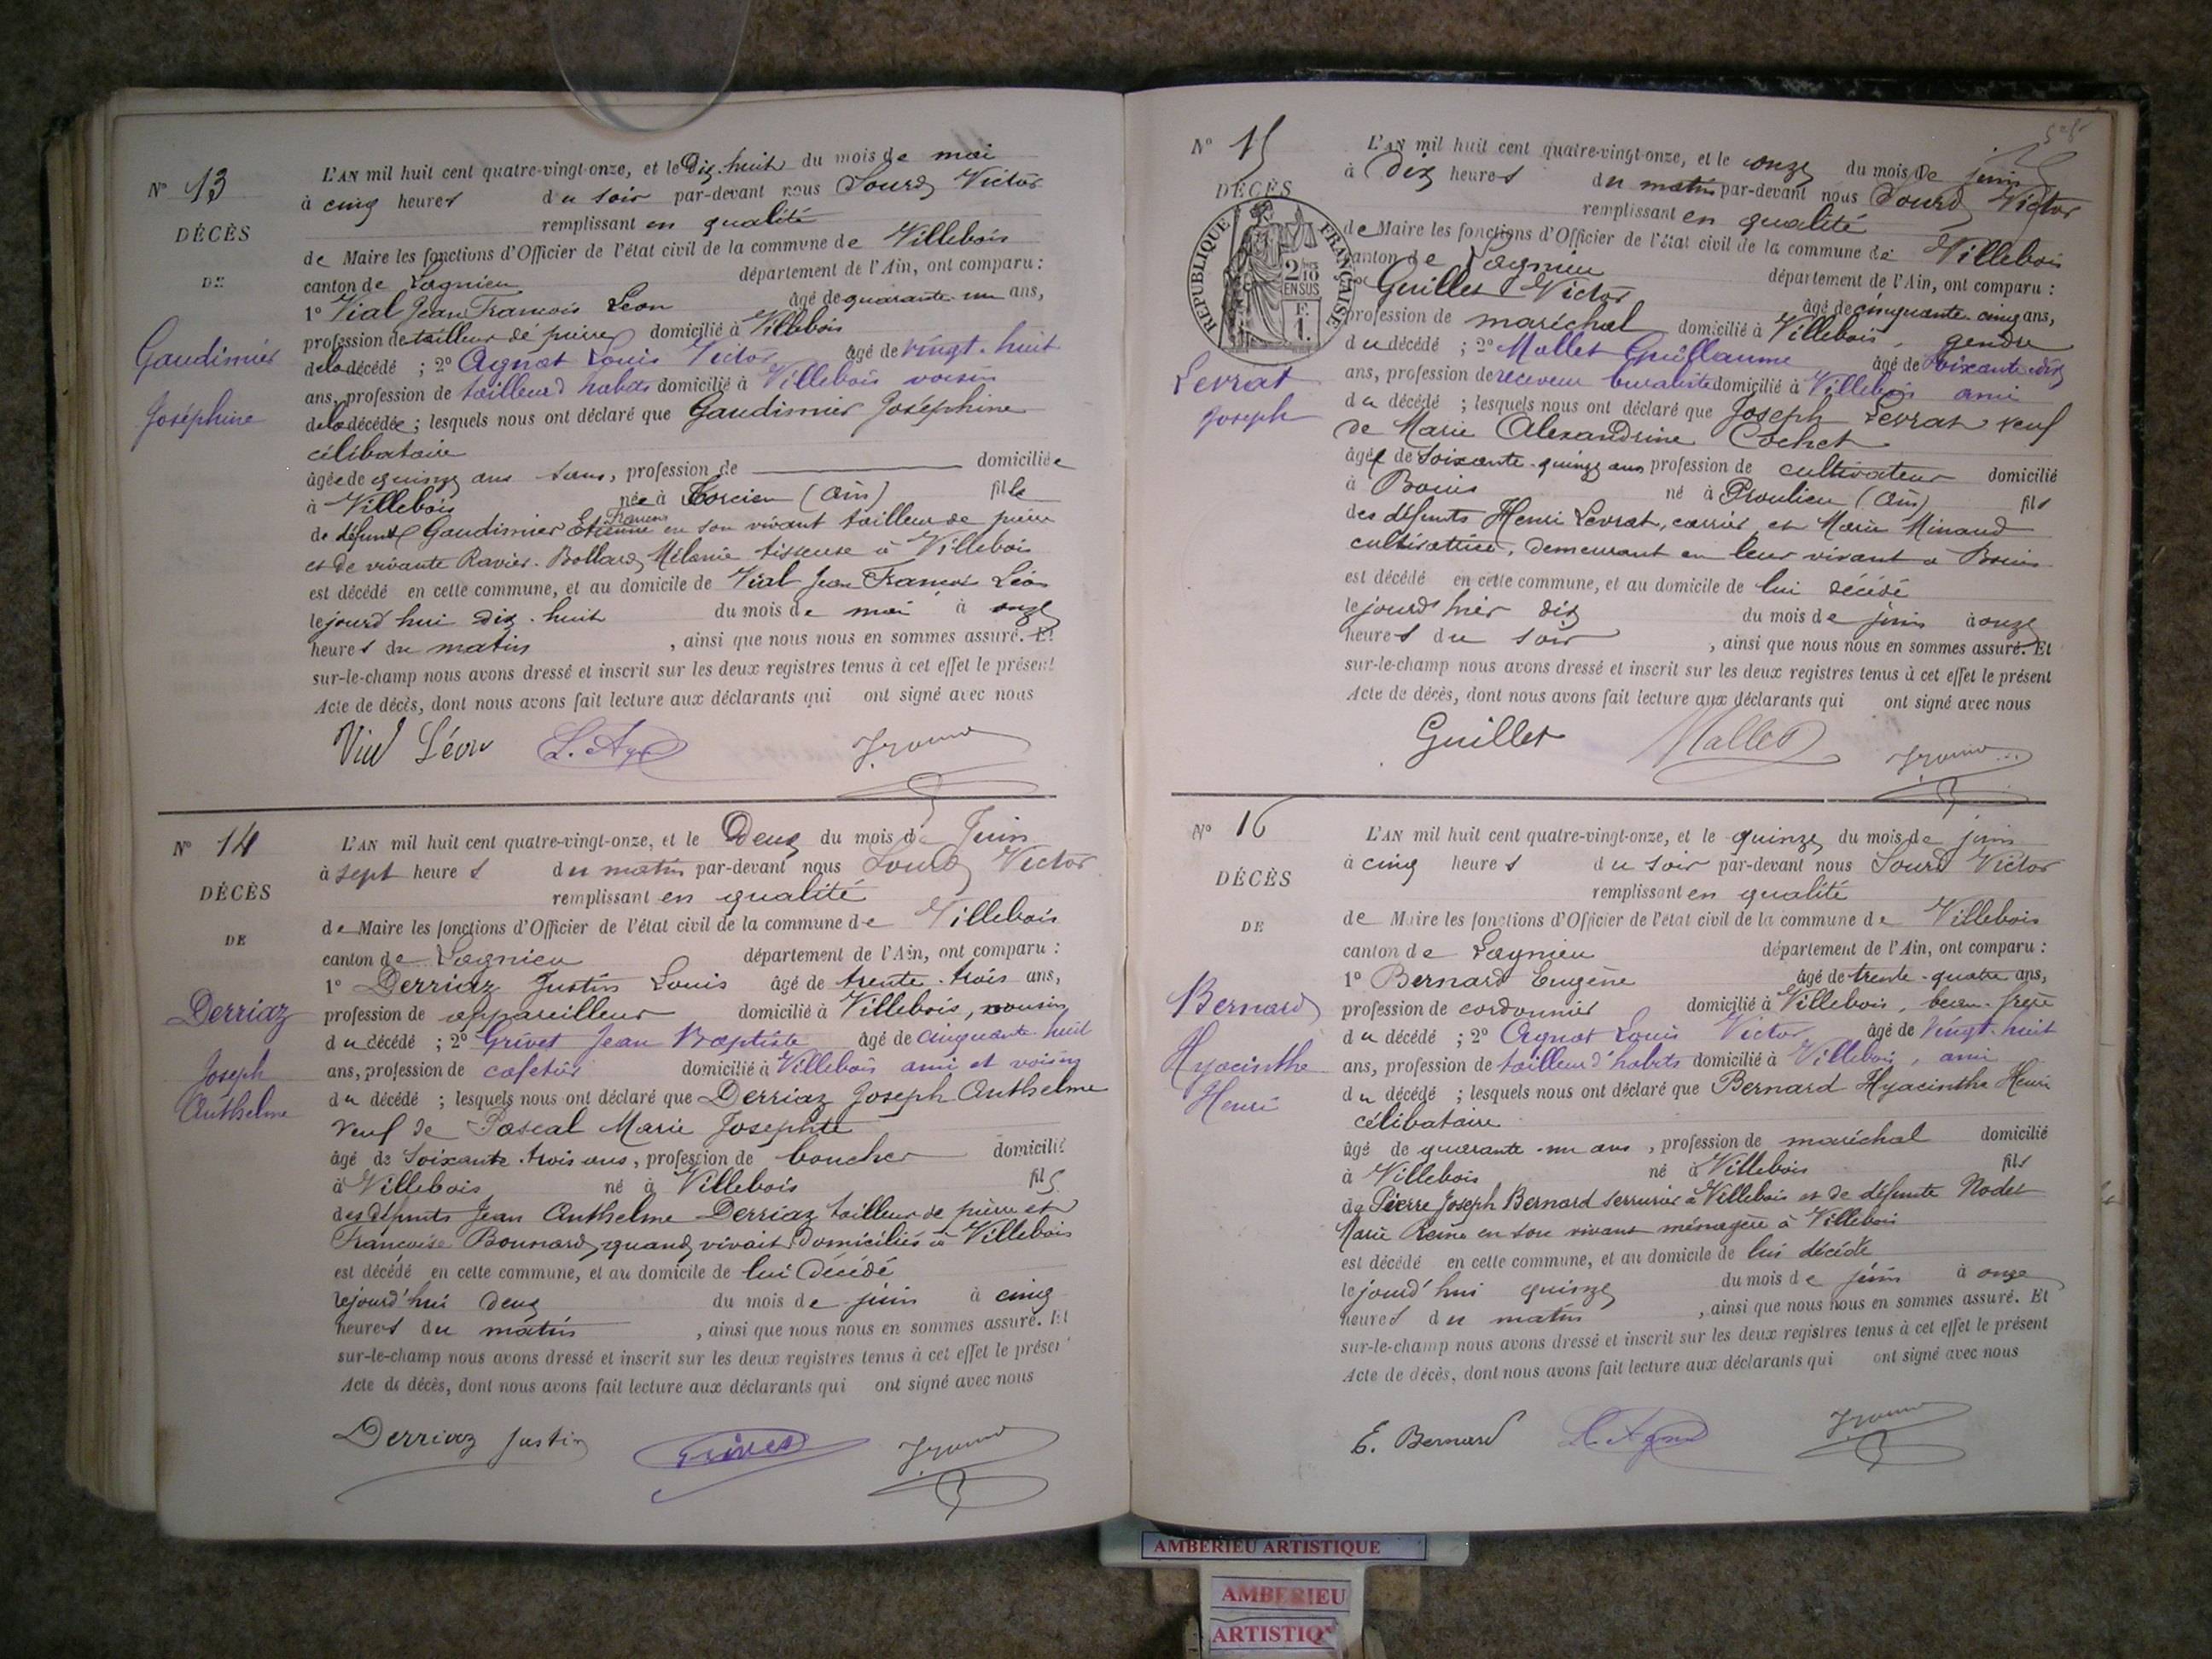 N° 13
DÉCÈS
DE
Gaudimier
Joséphine
L'AN mil huit cent quatre-vingt-onze, et le Dix-huit du mois de mai
à cinq heures du soir par-devant nous Sourd Victor
remplissant en qualité
de Maire les fonctions d'Officier de l'état civil de la commune de Villebois
canton de Lagnieu département de l'Ain, ont comparu :
1° Vial Jean François Léon âgé de quarante-un ans,
profession de tailleur de pierre domicilié à Villebois
de la décédé ; 2° Agnat Louis Victor âgé de vingt-huit
ans, profession de tailleur d'habits domicilié à Villebois voisin
de la décédée ; lesquels nous ont déclaré que Gaudimier Joséphine
célibataire
âgée de quinze ans sans, profession de domiciliée
à Villebois née à Torcieu (Ain) fille
de défunt Gaudimier Etienne François en son vivant tailleur de pierre
et de vivante Ravier-Bollard Mélanie tisseuse à Villebois
est décédé en cette commune, et au domicile de Vial Jean François Léon
le jourd'hui dix-huit du mois de mai à onze
heures du matin , ainsi que nous nous en sommes assuré. Et
sur-le-champ nous avons dressé et inscrit sur les deux registres tenus à cet effet le présent
Acte de décès, dont nous avons fait lecture aux déclarants qui ont signé avec nous
Vial Léon
N° 14
DÉCÈS
DE
Derriaz
Joseph
Anthelme
L'AN mil huit cent quatre-vingt-onze, et le Deux du mois de Juin
à sept heures du matin par-devant nous Sourd Victor
remplissant en qualité
de Maire les fonctions d'Officier de l'état civil de la commune de Villebois
canton de Lagnieu département de l'Ain, ont comparu :
1° Derriaz Justin Louis âgé de trente-trois ans,
profession de appareilleur domicilié à Villebois, cousin
du décédé ; 2° Grivet Jean Baptiste âgé de cinquante huit
ans, profession de cafetier domicilié à Villebois ami et voisin
du décédé ; lesquels nous ont déclaré que Derriaz Joseph Anthelme
veuf de Pascal Marie Josephte
âgé de soixante-trois ans, profession de boucher domicilié
à Villebois né à Villebois fils
des défunts Jean Anthelme Derriaz tailleur de pierre et
Françoise Bonnard quand vivait domiciliés à Villebois
est décédé en cette commune, et au domicile de lui décédé
le jourd'hui deux du mois de juin à cinq
heures du matin , ainsi que nous nous en sommes assuré. Et
sur-le-champ nous avons dressé et inscrit sur les deux registres tenus à cet effet le présent
Acte de décès, dont nous avons fait lecture aux déclarants qui ont signé avec nous
Derriaz Justin Grivet
N° 15
DÉCÈS
REPUBLIQUE FRANÇAISE
2/10 EN SUS
F. 1.
Levrat
Joseph
L'AN mil huit cent quatre-vingt-onze, et le onze du mois de juin
à Dix heures du matin par-devant nous Sourd Victor
remplissant en qualité
de Maire les fonctions d'Officier de l'état civil de la commune de Villebois
canton de Lagnieu département de l'Ain, ont comparu :
Guillet Victor âgé de cinquante-cinq ans,
profession de maréchal domicilié à Villebois, gendre
du décédé ; 2° Mallet Guillaume âgé de soixante-dix
ans, profession de receveur buraliste domicilié à Villebois ami
du décédé ; lesquels nous ont déclaré que Joseph Levrat veuf
de Marie Alexandrine Cochet
âgé de soixante-quinze ans profession de cultivateur domicilié
à Bouis né à Proulieu (Ain) fils
des défunts Henri Levrat, carrier, et Marie Minaud
cultivatrice, demeurant en leur vivant à Bouis
est décédé en cette commune, et au domicile de lui décédé
le jour d'hier dix du mois de juin à onze
heures du soir , ainsi que nous nous en sommes assuré. Et
sur-le-champ nous avons dressé et inscrit sur les deux registres tenus à cet effet le présent
Acte de décès, dont nous avons fait lecture aux déclarants qui ont signé avec nous
Guillet Mallet
N° 16
DÉCÈS
DE
Bernard
Hyacinthe
Henri
L'AN mil huit cent quatre-vingt-onze, et le quinze du mois de juin
à cinq heures du soir par-devant nous Sourd Victor
remplissant en qualité
de Maire les fonctions d'Officier de l'état civil de la commune de Villebois
canton de Lagnieu département de l'Ain, ont comparu :
1° Bernard Eugène âgé de trente-quatre ans,
profession de cordonnier domicilié à Villebois, beau-frère
du décédé ; 2° Agnat Louis Victor âgé de vingt-huit
ans, profession de tailleur d'habits domicilié à Villebois, ami
du décédé ; lesquels nous ont déclaré que Bernard Hyacinthe Henri
célibataire
âgé de quarante-un ans, profession de maréchal domicilié
à Villebois né à Villebois fils
de Pierre Joseph Bernard serrurier à Villebois et de défunte Nodet
Marie Reine en son vivant ménagère à Villebois
est décédé en cette commune, et au domicile de lui décédé
le jourd'hui quinze du mois de juin à onze
heures du matin , ainsi que nous nous en sommes assuré. Et
sur-le-champ nous avons dressé et inscrit sur les deux registres tenus à cet effet le présent
Acte de décès, dont nous avons fait lecture aux déclarants qui ont signé avec nous
E. Bernard
AMBERIEU ARTISTIQUE
AMBERIEU
ARTISTIQ